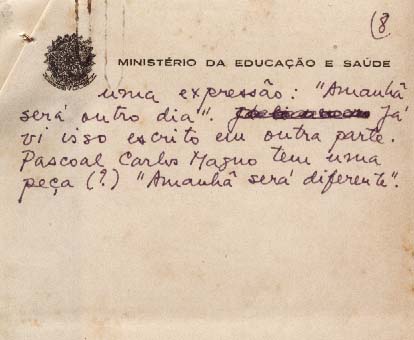 (8.
MINISTÉRIO DA EDUCAÇÃO E SAÚDE
uma expressão: "Amanhã
será outro dia". Já
vi isso escrito em outra parte.
Pascoal Carlos Magno tem uma
peça (?) "Amanhã será diferente".